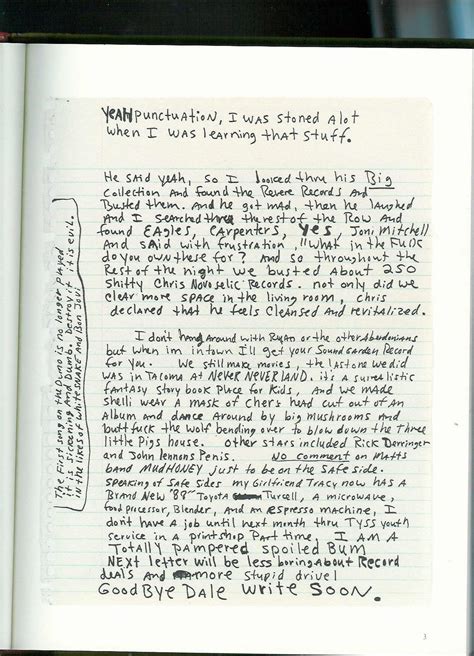 YEAH PUNCTUATION, I WAS STONED Alot
when I was learning that stuff.
He said yeah, so I looked thru his Big
Collection and found the Revere Records and
Busted them. And he got mad, then he laughed
And I searched three the rest of the Row and
found EAGLES, CARPENTERS, YES, Joni Mitchell
And said with frustration, "What in the Fuck
do you own these for? And so throughout the
Rest of the night we busted about 250
shitty Chris Novoselic Records. not only did we
clear more space in the living room, chris
declared that he feels Cleansed and revitalized.
I dont hang around with Ryan or the other Aberdonians
but when im in town I'll get your Soundgarden Record
for You. We still make movies, the last one we did
was in Tacoma at NEVER NEVERLAND. it's a surrealistic
fantasy story book Place for Kids, And we made
shelli wear a mask of chers head cut out of an
Album and dance Around by big mushrooms and
buttfuck the wolf bending over to blow down the Three
little Pigs house. Other stars included Rick Derringer
and John lennons Penis. No comment on Matts
band MUDHONEY just to be on the safe side.
speaking of Safe sides my Girlfriend Tracy now has a
Brand New '89" Toyota Turcell, a microwave,
food processor, Blender, and an espresso machine, I
don't have a job until next month thru TYSS youth
service in a printshop Part time, I AM A
Totally pampered spoiled Bum
NEXT letter will be less boring About Record
deals And more stupid drivel
GOOD BYE DALE write SOON.
The First song on the Demo is no longer played
it is sickening and Dumb. Destroy it it is evil.
in the likes of WHITESNAKE and Bon Jovi
3